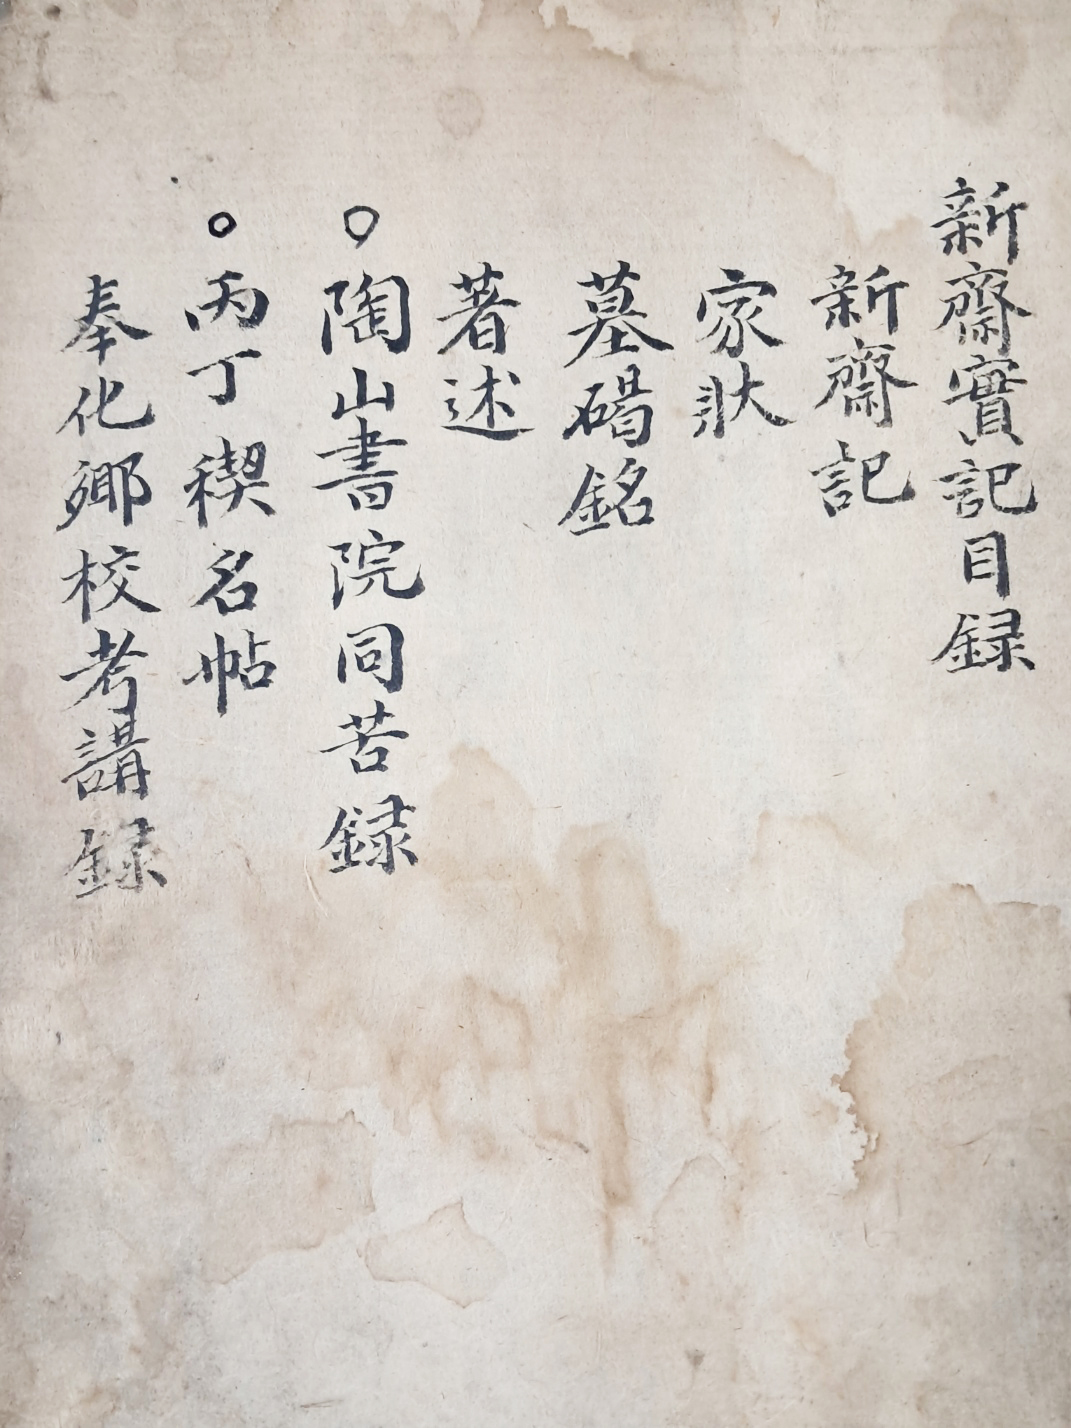 新齋實記目録
新齋記
家狀
墓碣銘
著述
○陶山書院同苦録
○丙丁稧名帖
奉化鄉校考講録